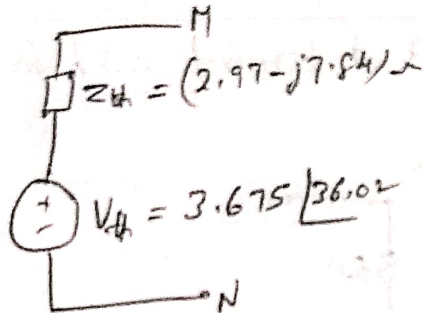 M
Zth = (2.97-j7.84) Ω
+
-
Vth = 3.675 ∠36.02
N